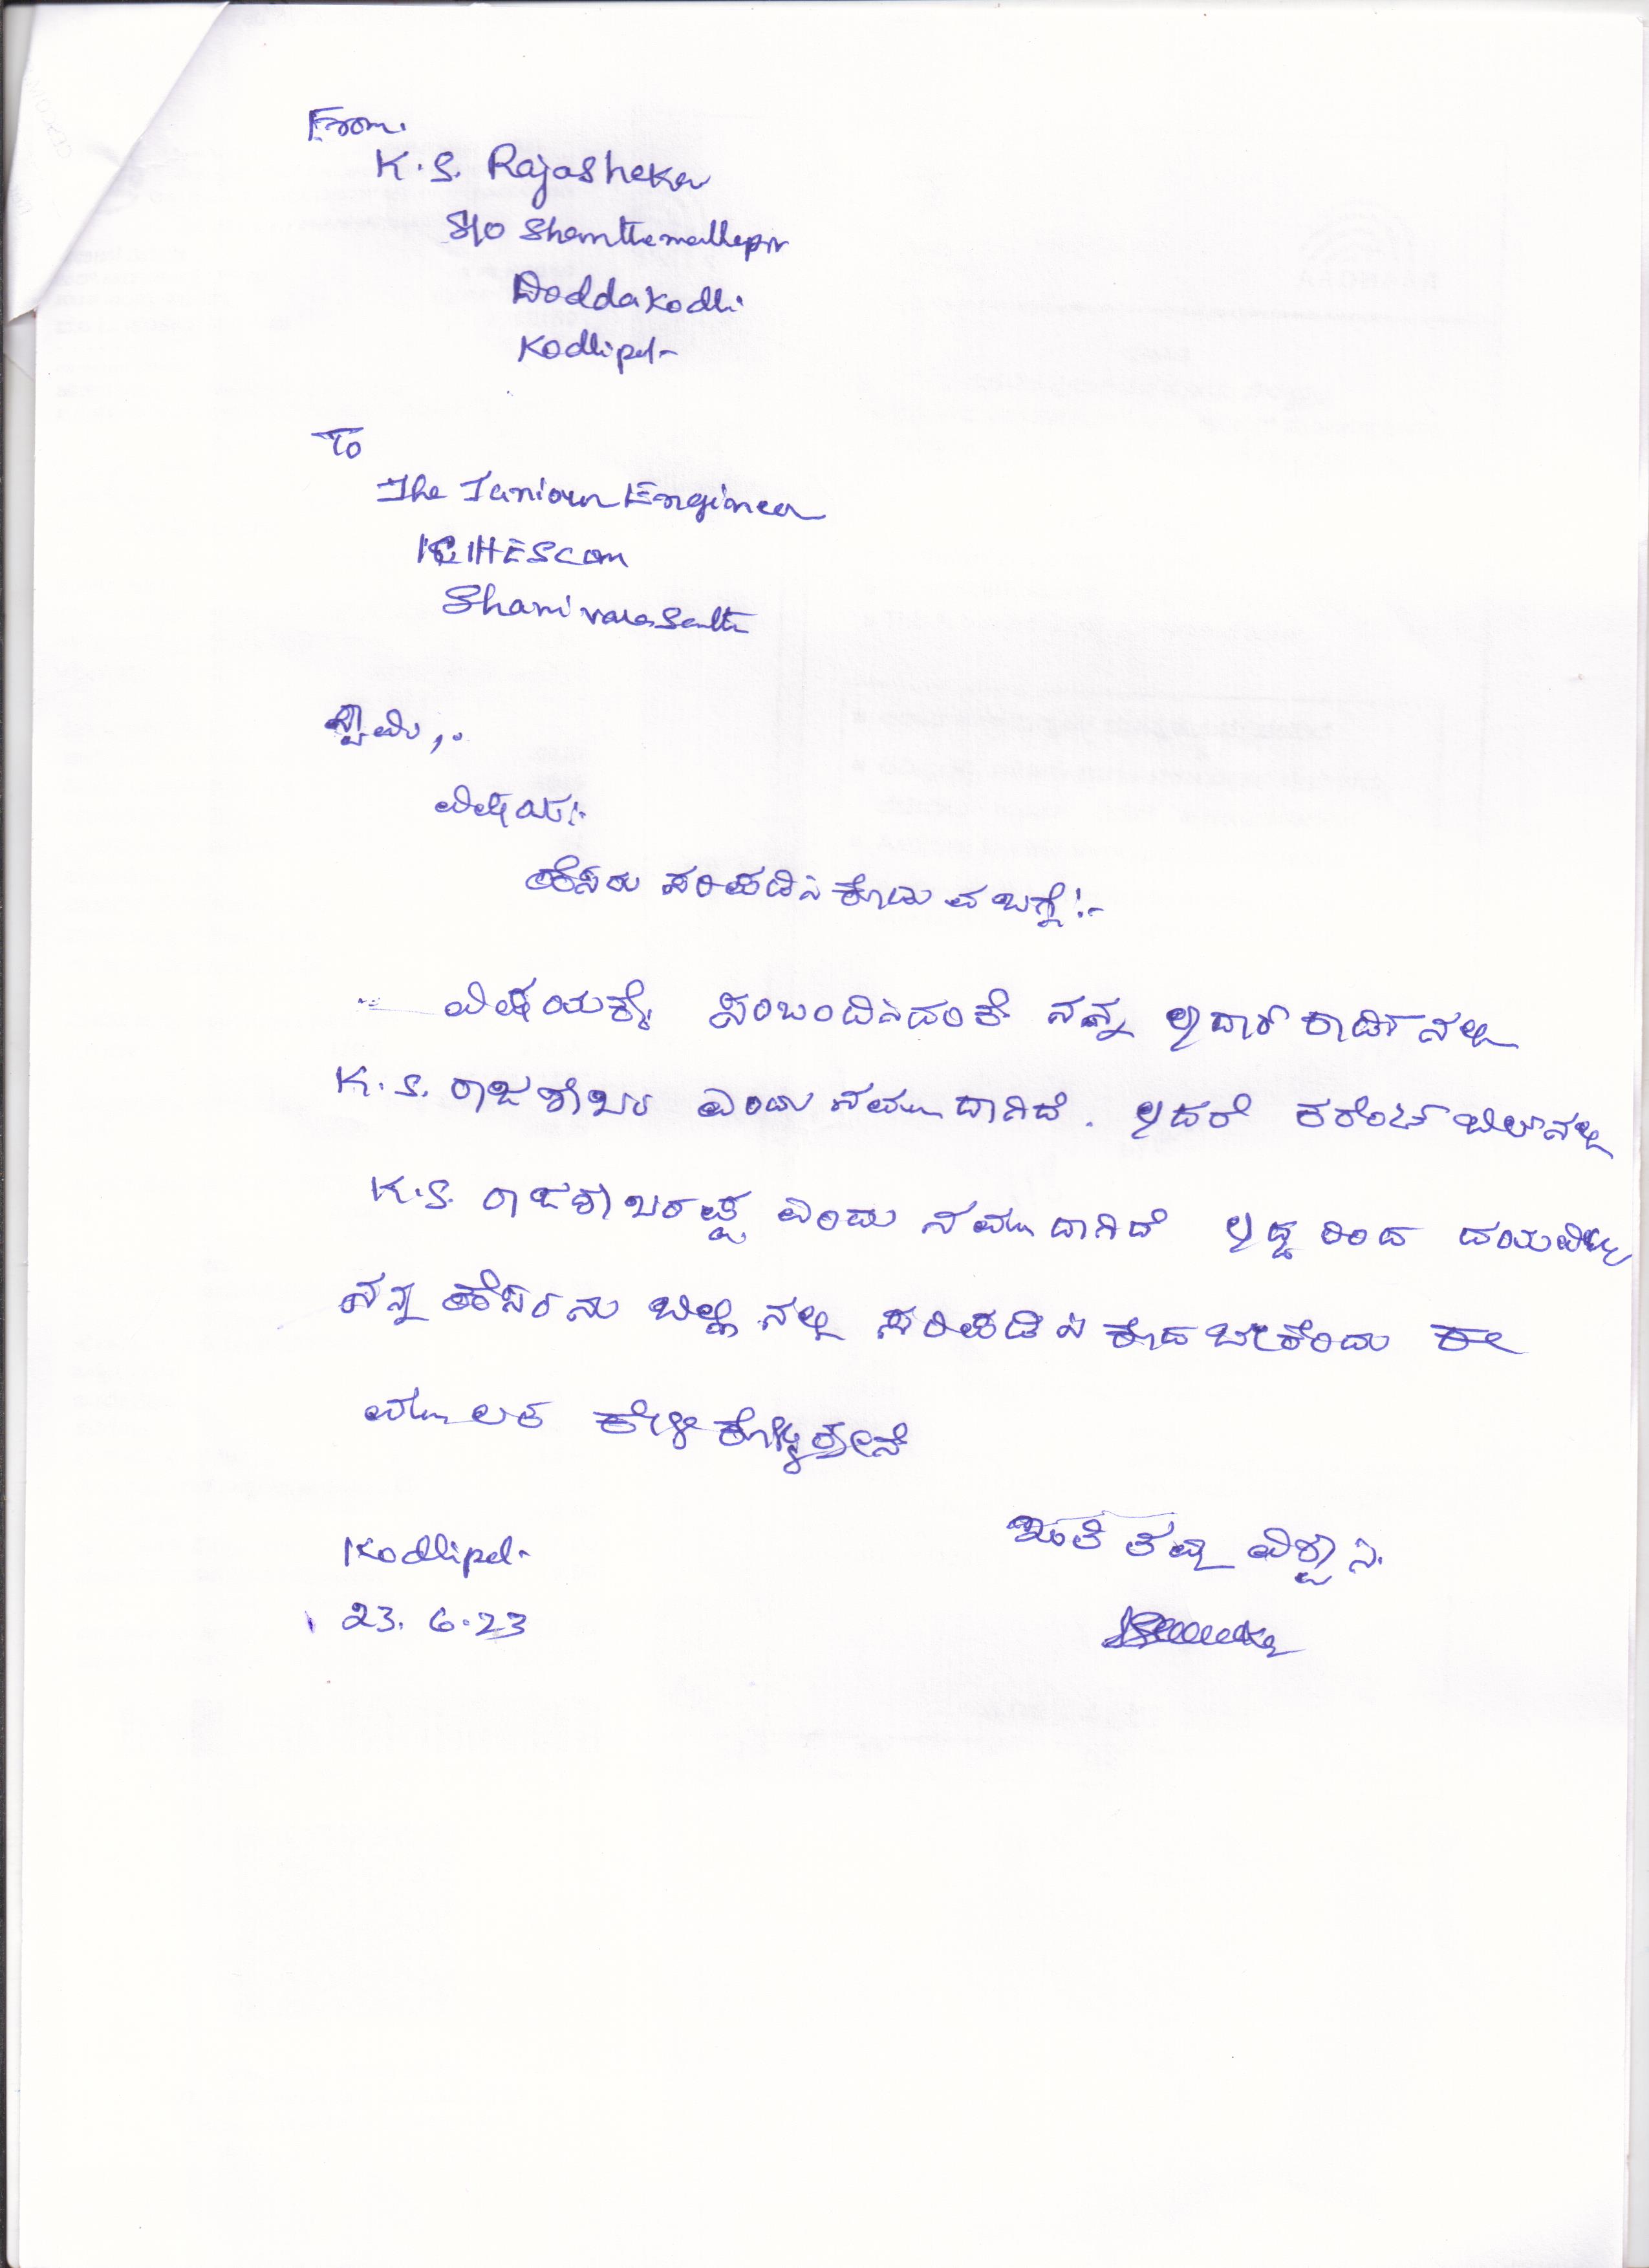 From.
K. S. Rajasheker
S/o Shanthamallappa
Doddakodli
Kodlipet
To
The Juniour Engineer
CHEScom
Shanivarasanthe
ಸ್ವಾಮಿ,
ವಿಷಯ:-
ಹೆಸರು ಸರಿಪಡಿಸಿ ಕೊಡುವ ಬಗ್ಗೆ :-
ವಿಷಯಕ್ಕೆ ಸಂಬಂದಿಸಿದಂತೆ ನನ್ನ ಆದಾರ್ ಕಾರ್ಡ್ ನಲ್ಲಿ
K. S. ರಾಜಶೇಖರ ಎಂದು ನಮೂದಾಗಿದೆ. ಆದರೆ ಕರೆಂಟ್ ಬಿಲ್ ನಲ್ಲಿ
K.S. ರಾಜಶೇಖರಪ್ಪ ಎಂದು ನಮೂದಾಗಿದೆ ಆದ್ದರಿಂದ ದಯವಿಟ್ಟು
ನನ್ನ ಹೆಸರನು ಬಿಲ್ಲಿನಲ್ಲಿ ಸರಿಪಡಿಸಿ ಕೊಡಬೇಕೆಂದು ಈ
ಮೂಲಕ ಕೇಳಿಕೊಳ್ಳುತ್ತೇನೆ
Kodlipet
23. 6.23
ಇಂತಿ ತಮ್ಮ ವಿಶ್ವಾಸಿ.